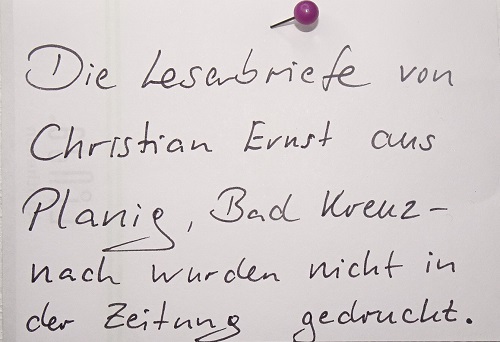 Die Leserbriefe von
Christian Ernst aus
Planig, Bad Kreuz-
nach wurden nicht in
der Zeitung gedruckt.